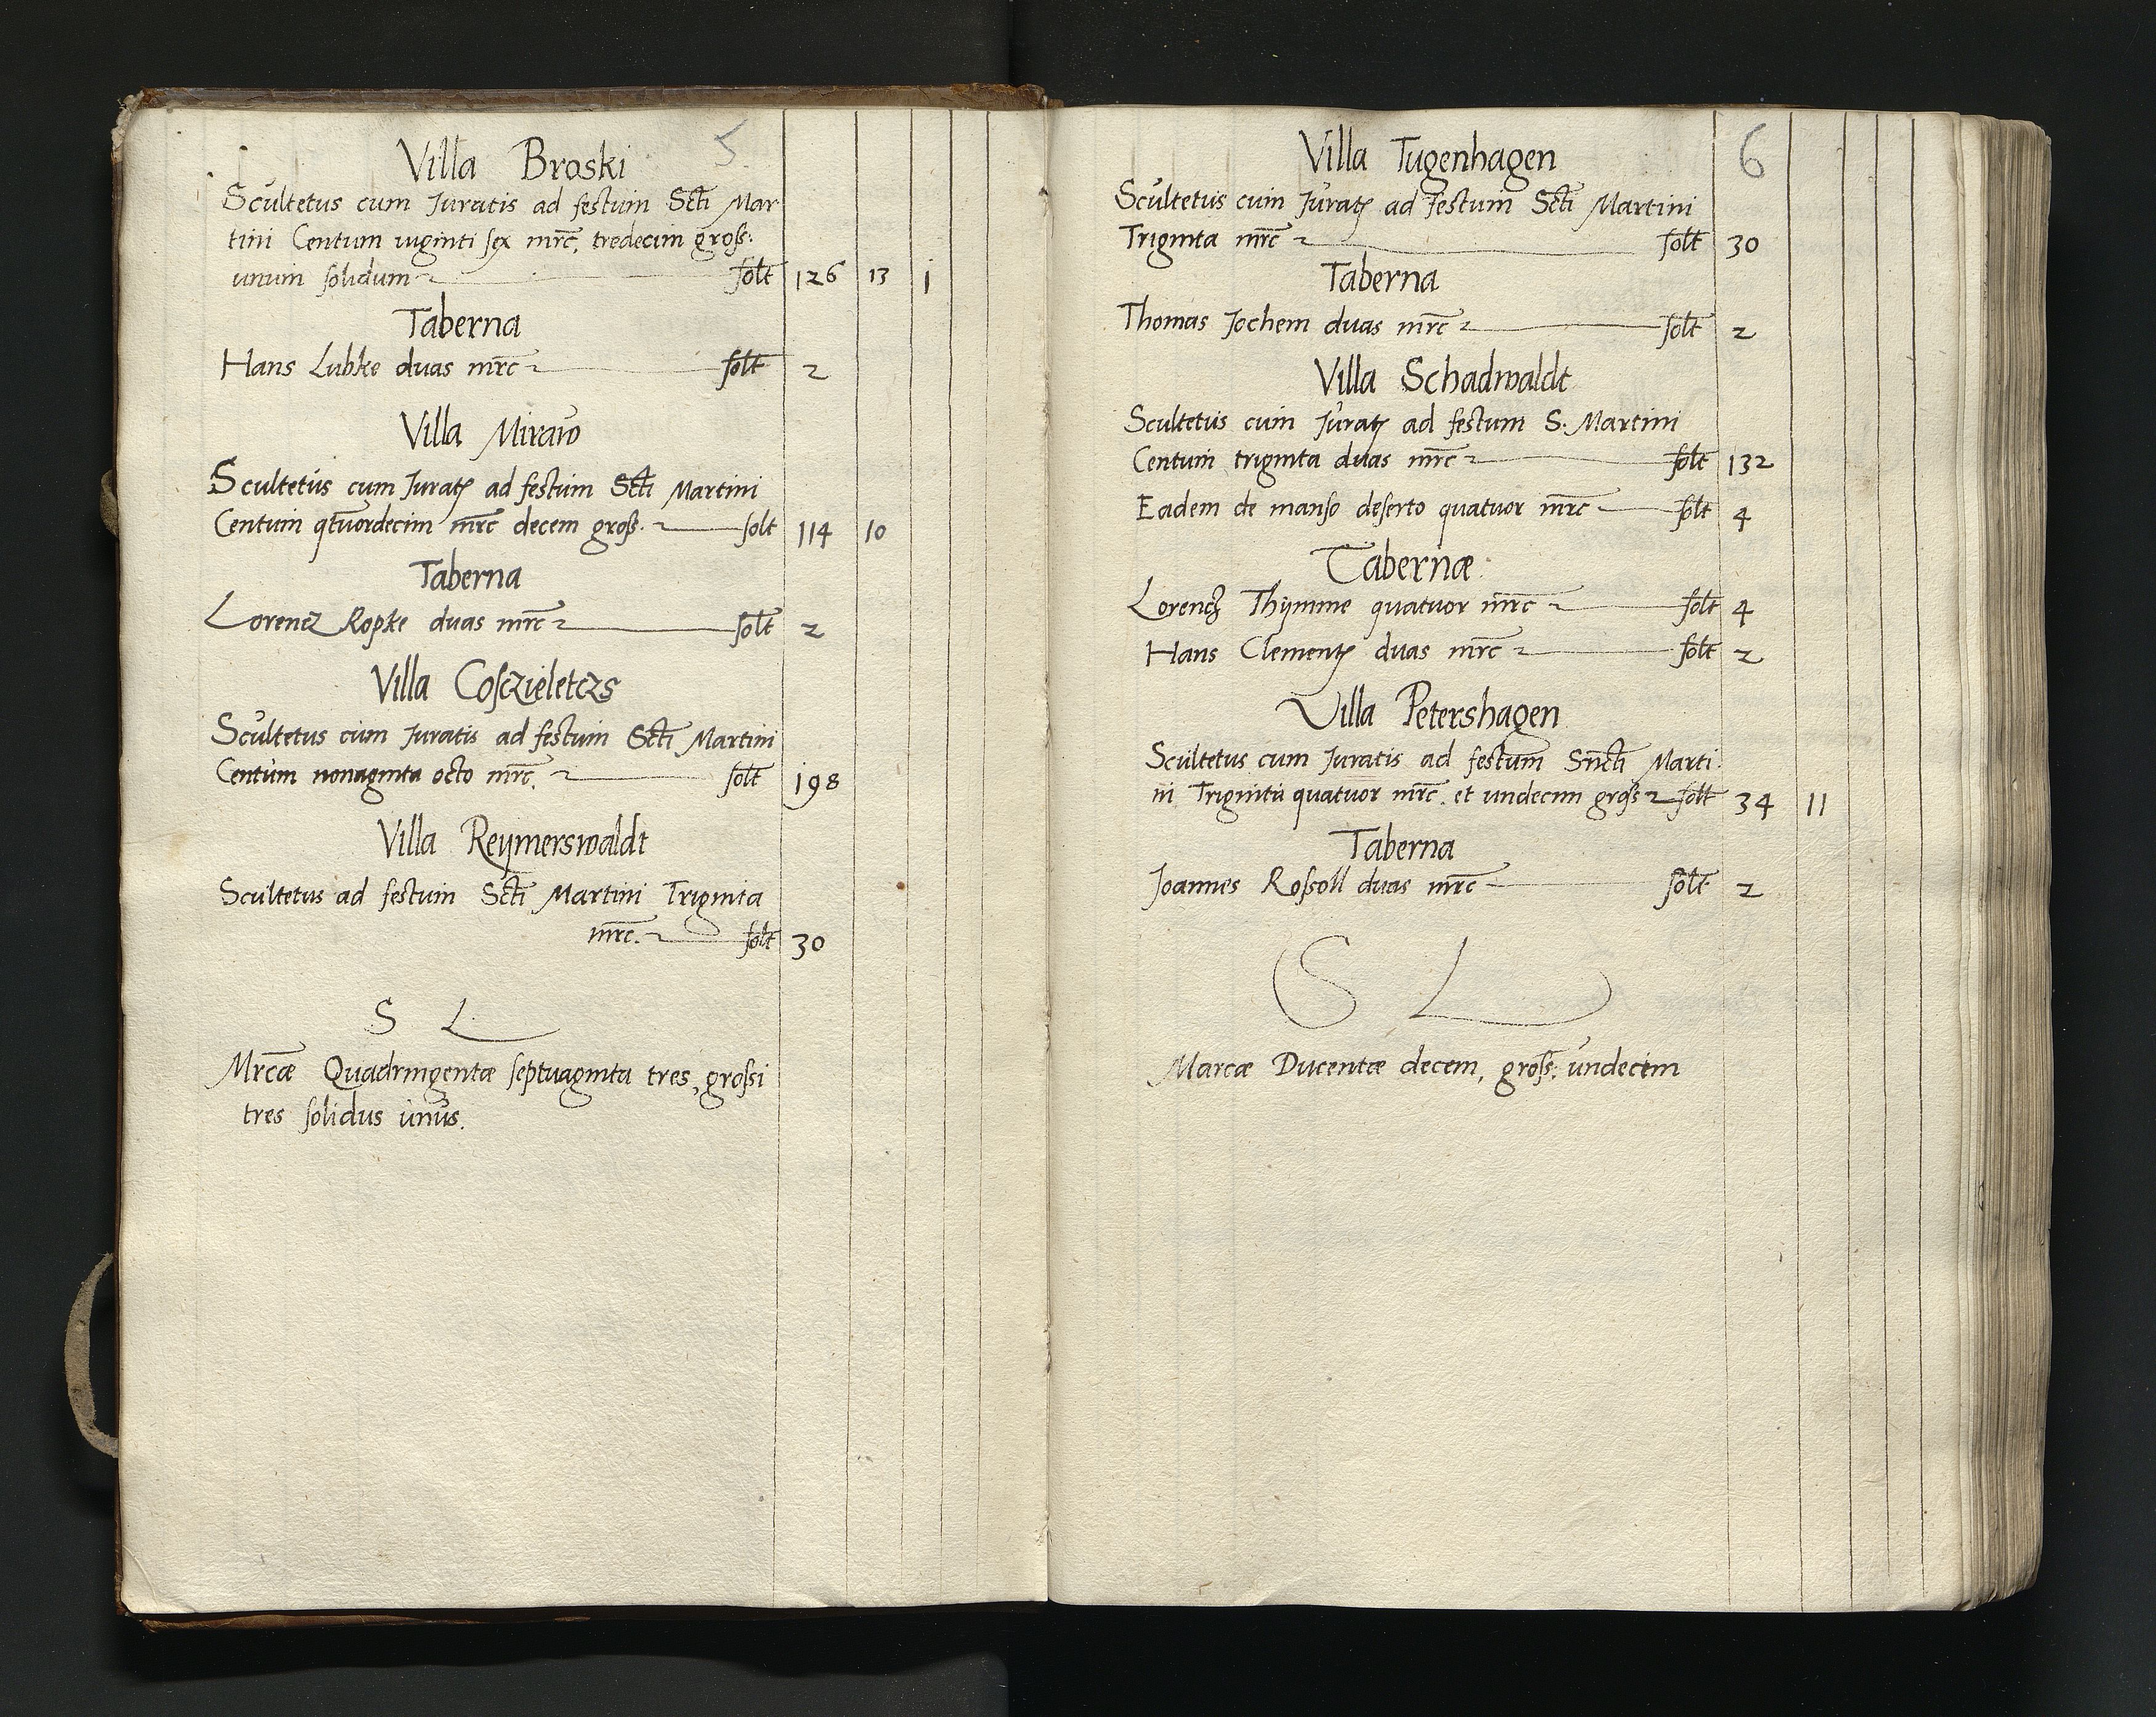 5
Villa Broski
Scultetus cum Juratis ad festum Scti Mar
tini Centum viginti sex mrc, tredecim gross:
unum solidum solt 126 13 1
Taberna
Hans Lubke duas mrc solt 2
Villa Miraw
Scultetus cum Juratz ad festum Scti Martini
Centum qtuordecim mrc decem gross. solt 114 10
Taberna
Lorencz Ropke duas mrc solt 2
Villa Cosczieletczs
Scultetus cum Juratis ad festum Scti Martini
Centum nonaginta octo mrc. solt 198
Villa Reymerswaldt
Scultetus ad festum Scti Martini Triginta
mrc. solt 30
S L
Mrcæ Quadringentæ septuaginta tres, grossi
tres solidus unus.
6
Villa Tugenhagen
Scultetus cum Juratz ad festum Scti Martini
Triginta mrc solt 30
Taberna
Thomas Jochem duas mrc solt 2
Villa Schadwaldt
Scultetus cum Juratz ad festum S. Martini
Centum triginta duas mrc solt 132
Eadem de manso deserto quatuor mrc solt 4
Tabernæ
Lorencz Thymme quatuor mrc solt 4
Hans Clementz duas mrc solt 2
Villa Petershagen
Scultetus cum Juratis ad festum Sncti Marti
ni Triginta quatuor mrc. et undecim gross solt 34 11
Taberna
Joannes Rossoll duas mrc solt 2
S L
Marcæ Ducentæ decem, gross: undecim